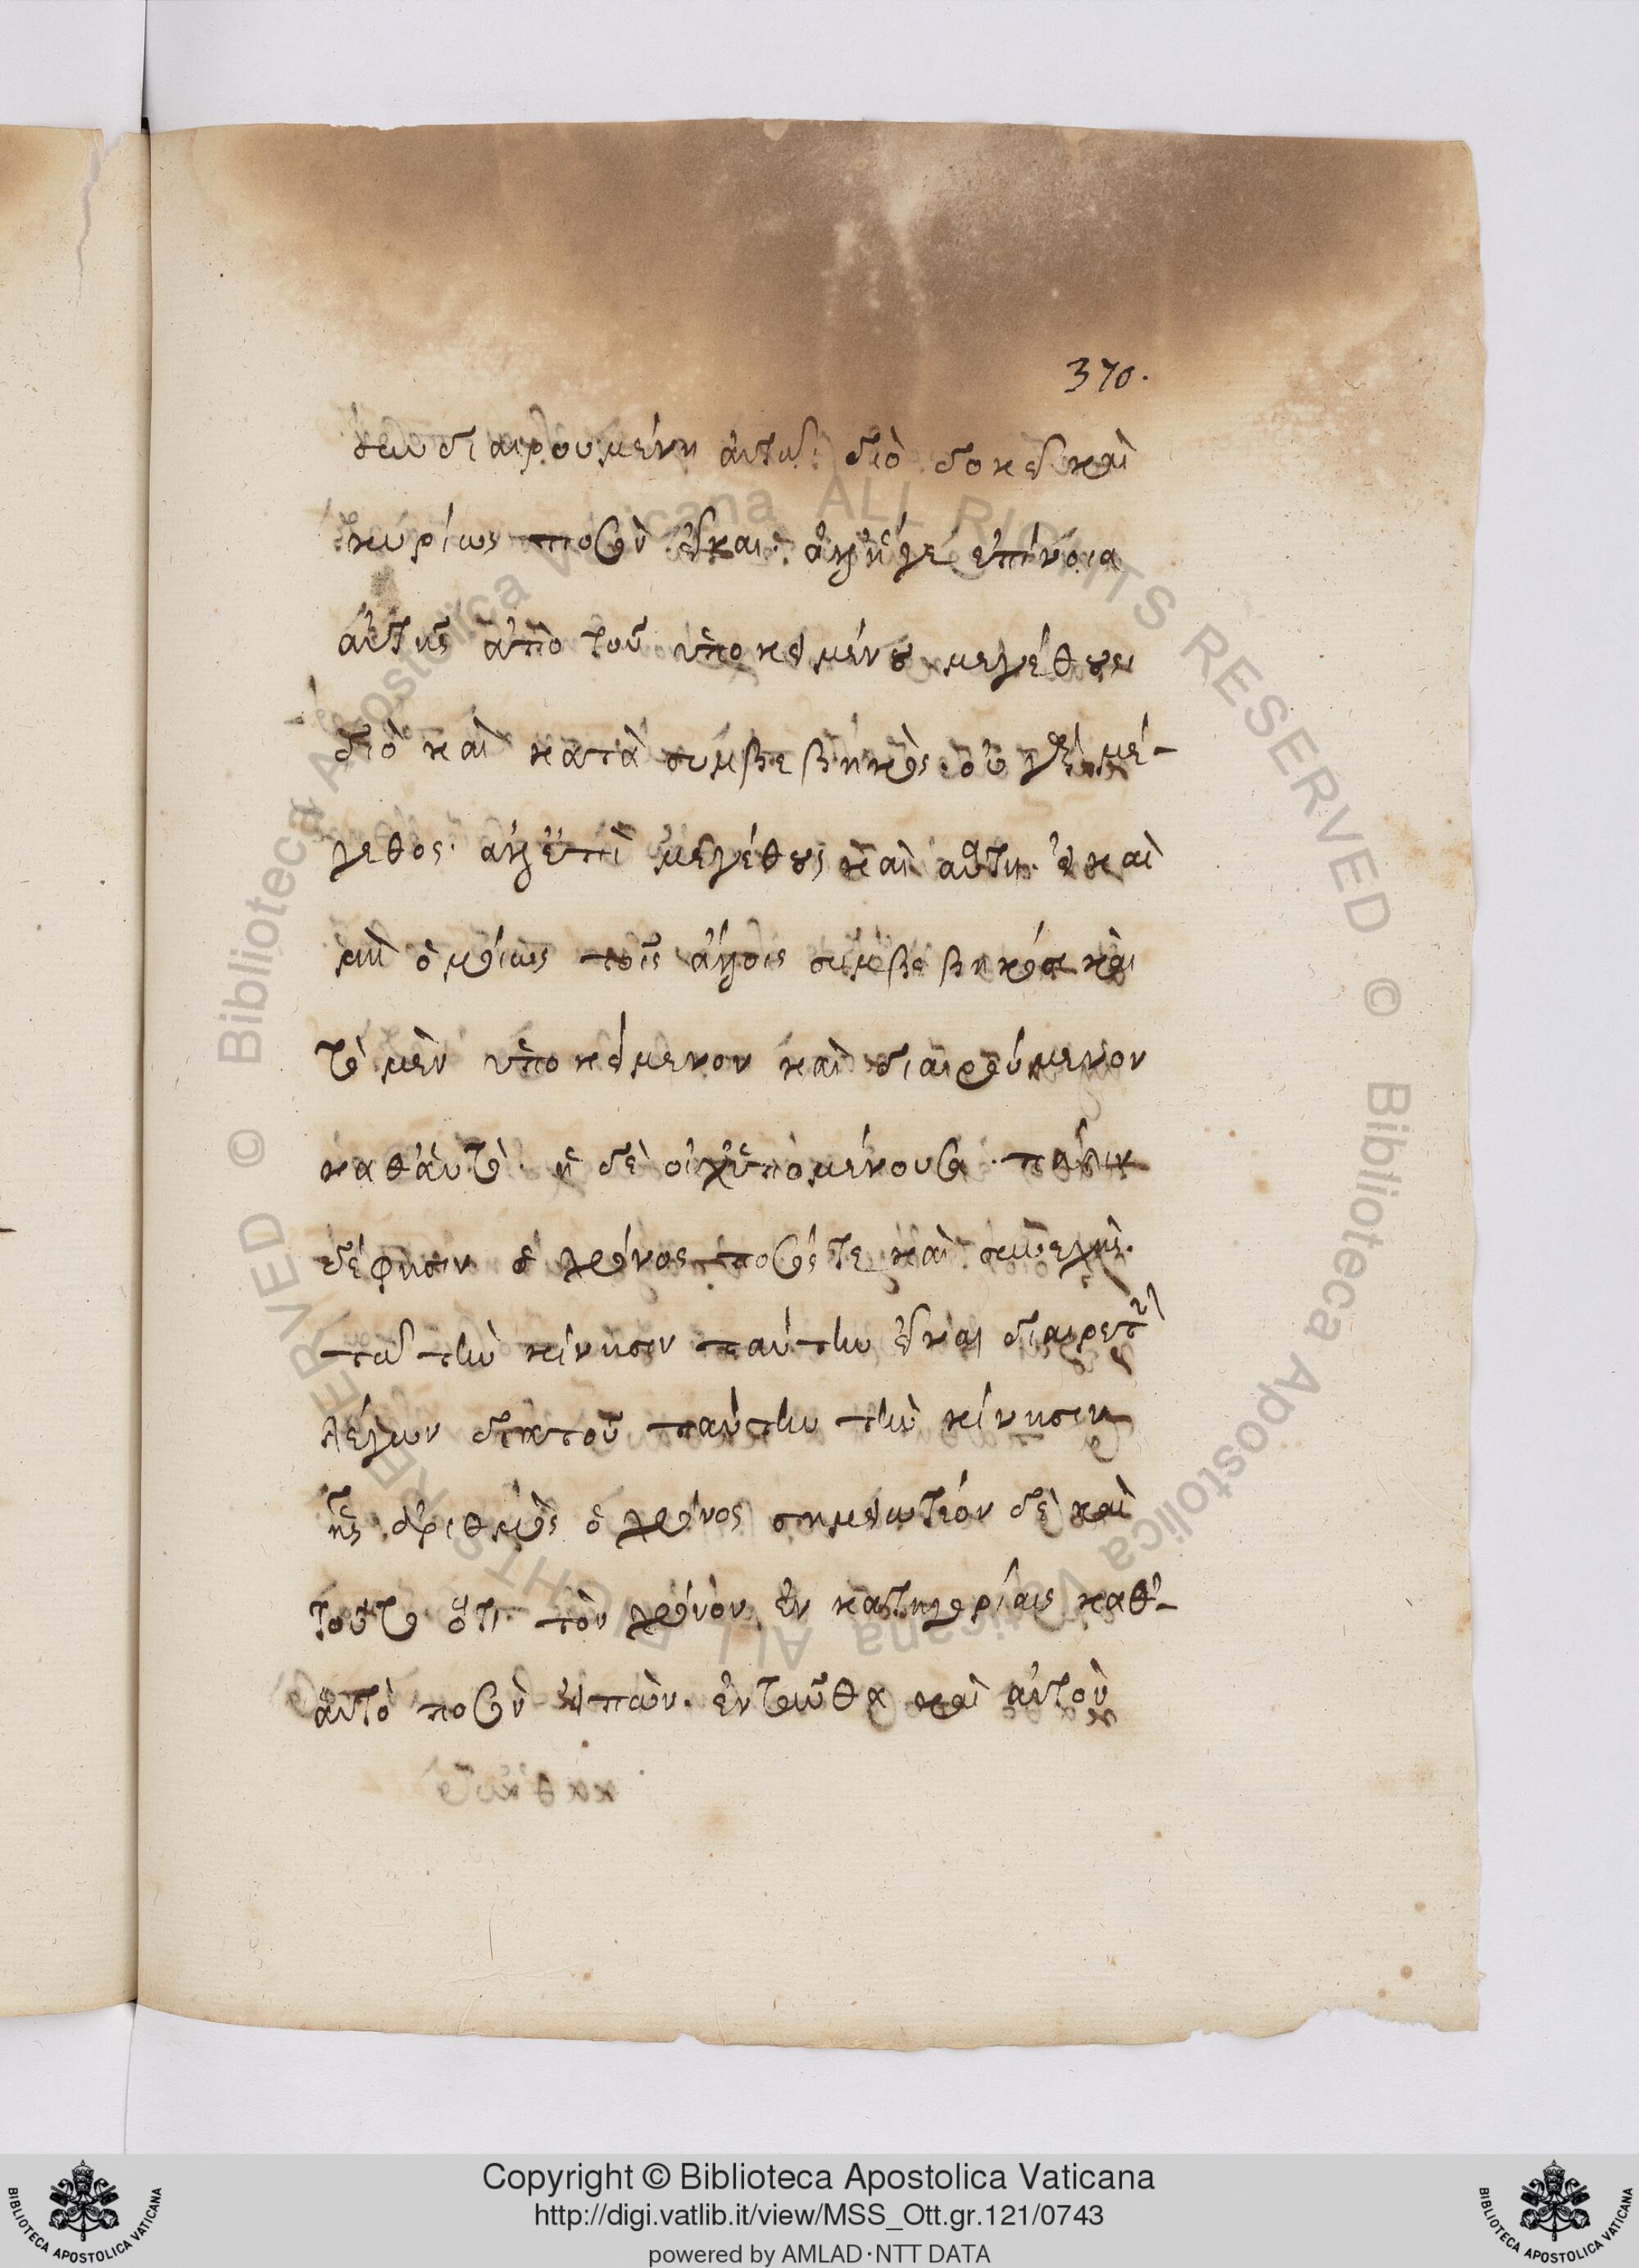 370.
συνδιαιρουμένη αὐτῷ· διὸ δοκεῖ καὶ
κυρίως ποσὸν εἶναι· ἀλλ' ἥγε ἐπίνοια
αὐτῆς ἀπὸ τοῦ ὑποκειμένου μεγέθους
διὸ καὶ κατὰ συμβεβηκὸς· οὐ γὰρ μέ-
γεθος· ἀλλ' ἐπὶ μεγέθους καὶ αὕτη· εἰ καὶ
μὴ ὁμοίως τοῖς ἄλλοις συμβεβηκόσι καὶ
τὸ μὲν ὑποκείμενον καὶ διαιρούμενον
καθ' αὑτὸ· ἡ δὲ οὐχ' ὑπομένουσα· πάλιν
δέ φησιν ὁ χρόνος ποσός τε καὶ συνεχὴς·
τῷ τὴν κίνησιν ταύτην εἶναι διαιρετ
λέγων διὰ τοῦ ταύτην τὴν κίνησιν
ἧς ἀριθμὸς ὁ χρόνος σημειωτέον δὲ καὶ
τοῦτο ὅτι τὸν χρόνον ἐν κατηγορίαις καθ'-
αὑτὸ ποσὸν εἰπὼν· ἐνταῦθα καὶ αὐτὸν
Copyright © Biblioteca Apostolica Vaticana
http://digi.vatlib.it/view/MSS_Ott.gr.121/0743
powered by AMLAD·NTT DATA
BIBLIOTECA APOSTOLICA VATICANA
BIBLIOTECA APOSTOLICA VATICANA
© Biblioteca Apostolica Vaticana ALL RIGHTS RESERVED
© Biblioteca Apostolica Vaticana ALL RIGHTS RESERVED